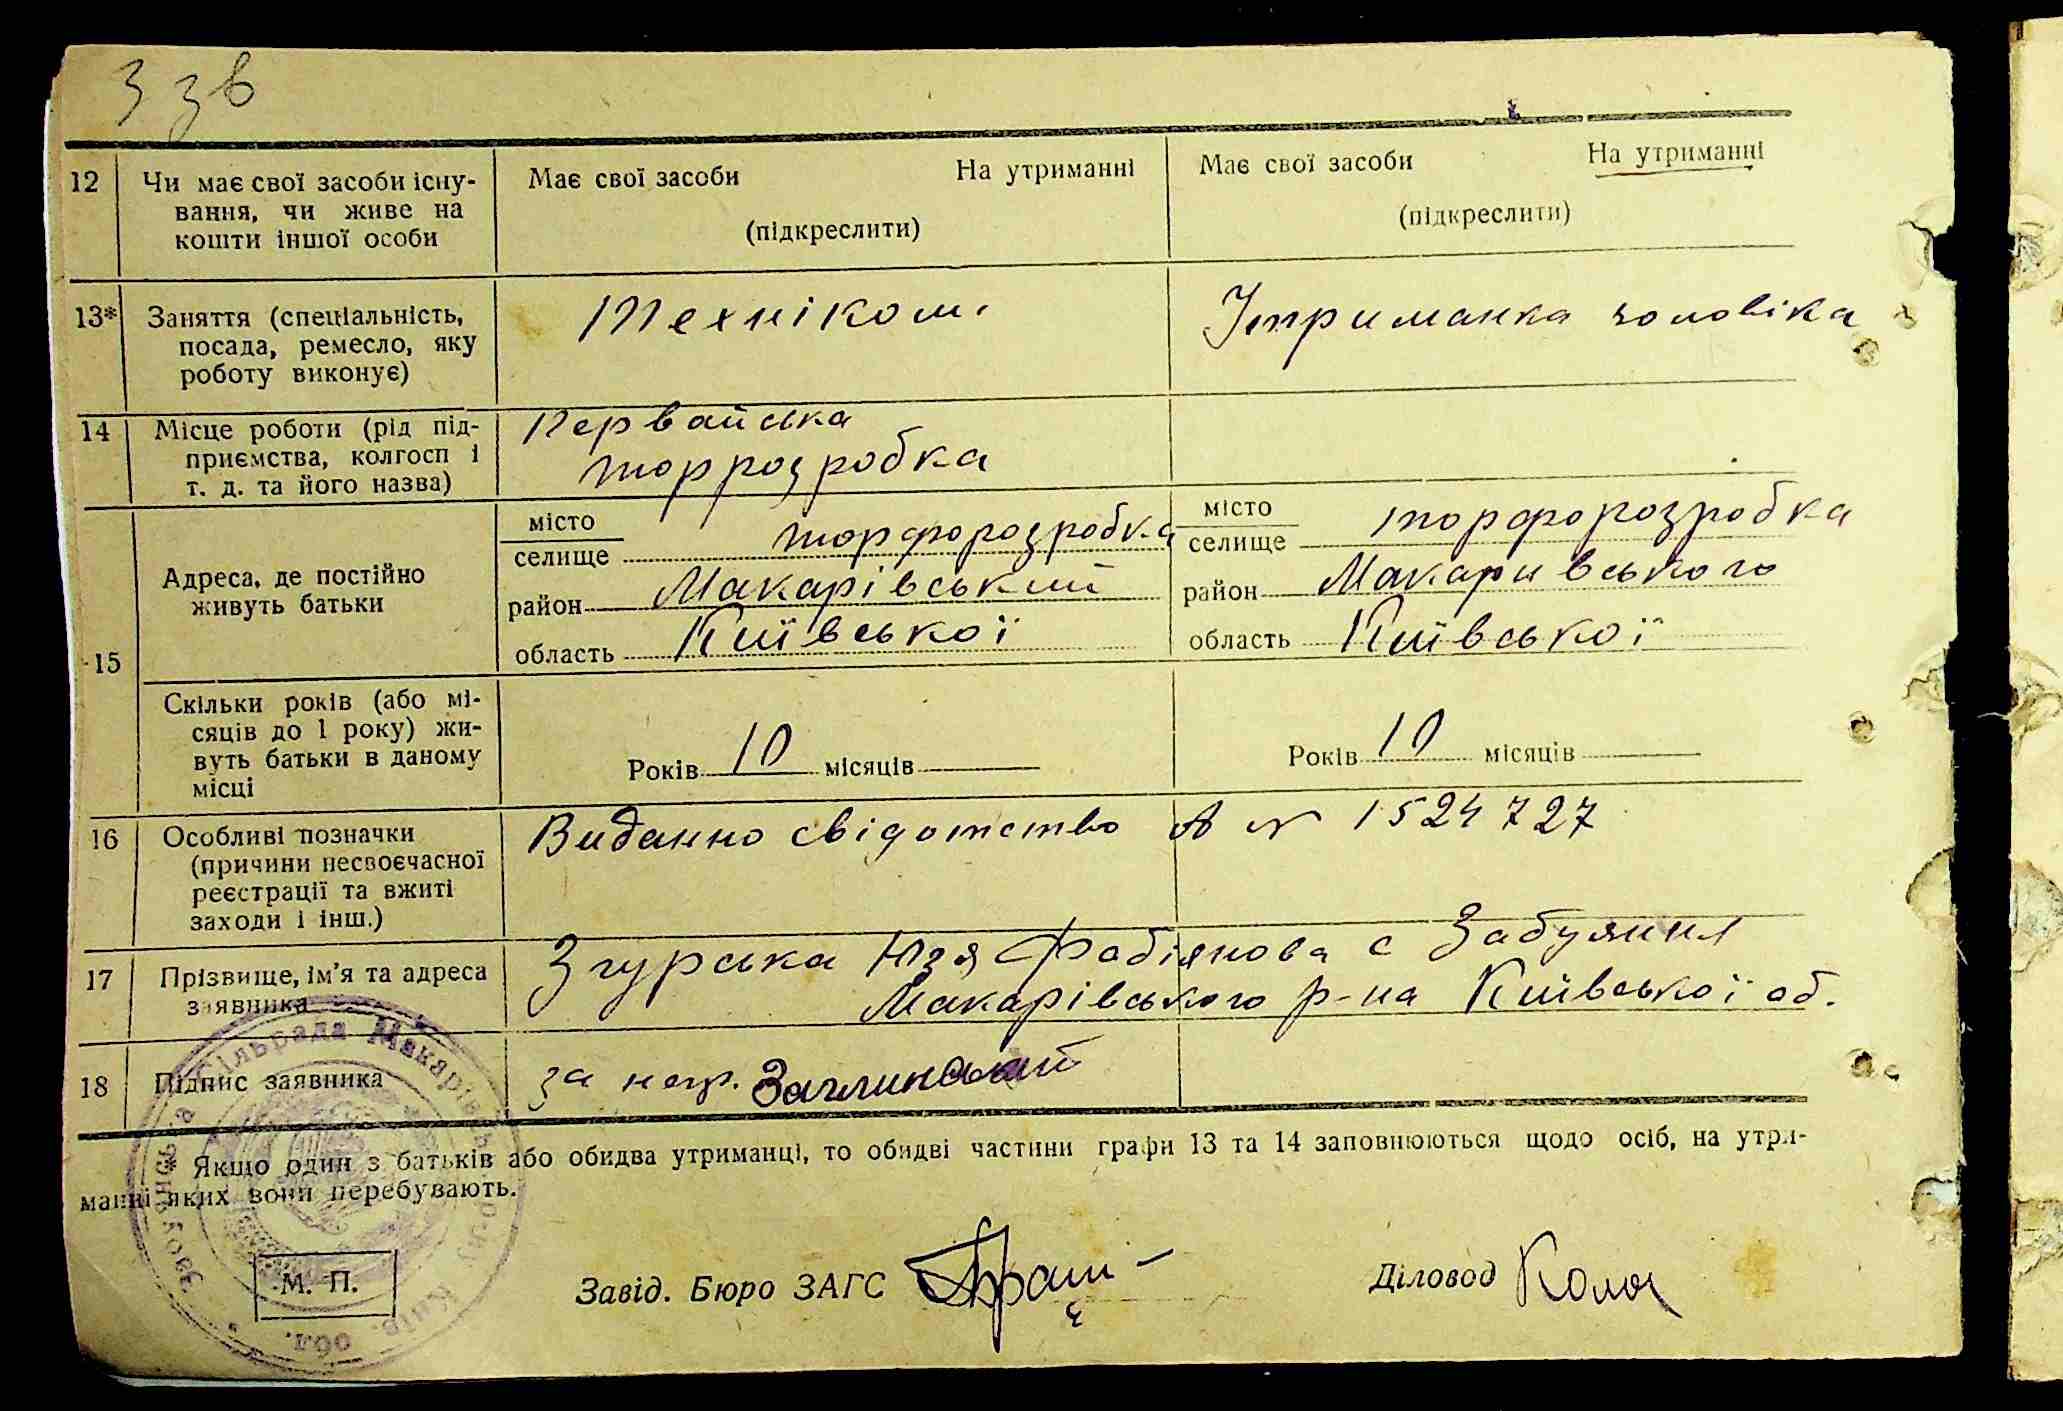 33в
12 Чи має свої засоби існу- Має свої засоби На утриманні Має свої засоби На утриманні
вання, чи живе на (підкреслити) (підкреслити)
кошти іншої особи
13* Заняття (спеціальність, Техніком. Утриманка чоловіка
посада, ремесло, яку
роботу виконує)
14 Місце роботи (рід під- Первайська
приємства, колгосп і торрозробка
т. д. та його назва)
15 Адреса, де постійно
живуть батьки
місто селище торфорозробка місто селище торфорозробка
район Макарівський район Макаривського
область Київської область Київської
Скільки років (або мі-
сяців до 1 року) жи-
вуть батьки в даному
місці
Років 10 місяців Років 10 місяців
16 Особливі позначки Виданно свідотство А № 1524727
(причини несвоєчасної
реєстрації та вжиті
заходи і інш.)
17 Прізвище, ім'я та адреса Згурська Юзя Фабіянова с Забуяння
заявника Макарівського р-на Київської об.
18 Підпис заявника за негр.
* Якщо один з батьків або обидва утриманці, то обидві частини графи 13 та 14 заповнюються щодо осіб, на утри-
манні яких вони перебувають.
М. П. Завід. Бюро ЗАГС Діловод
сільрада Макарівськ. р-ну Київ. обл.